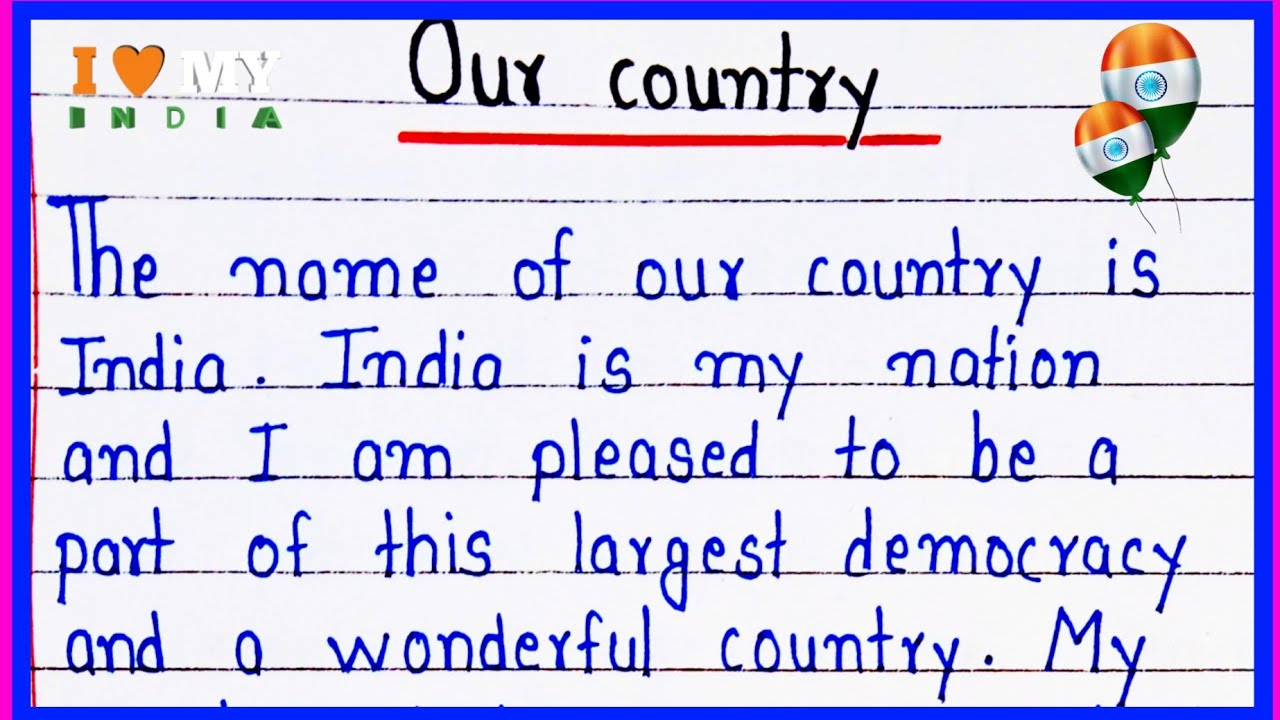 I MY
INDIA
Our country
The name of our country is
India. India is my nation
and I am pleased to be a
part of this largest democracy
and a wonderful country. My